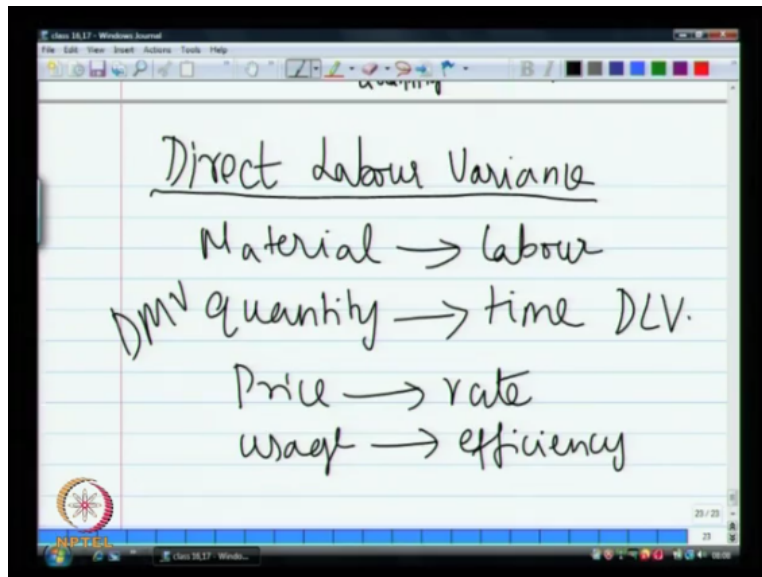 class 16,17 - Windows Journal
File Edit View Insert Actions Tools Help
B I
Quantity
Direct Labour Variance
Material → Labour
DMV quantity → time DLV.
Price → rate
usage → efficiency
23 / 23
23
NPTEL
class 16,17 - Windo...